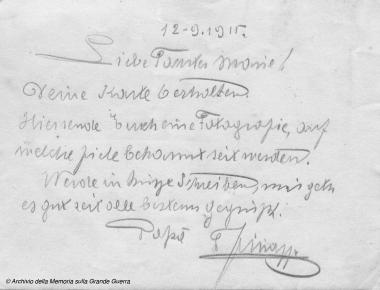 12-9.1915.
Liebe Tante Marie!
Deine Karte erhalten.
Hiersende Euch eine Fotografie, auf
welche fiele bekannt seit werden.
Werde in Schreiben, mir geht
es gut seit alle bestens gegrüßt.
Papa
© Archivio della Memoria sulla Grande Guerra